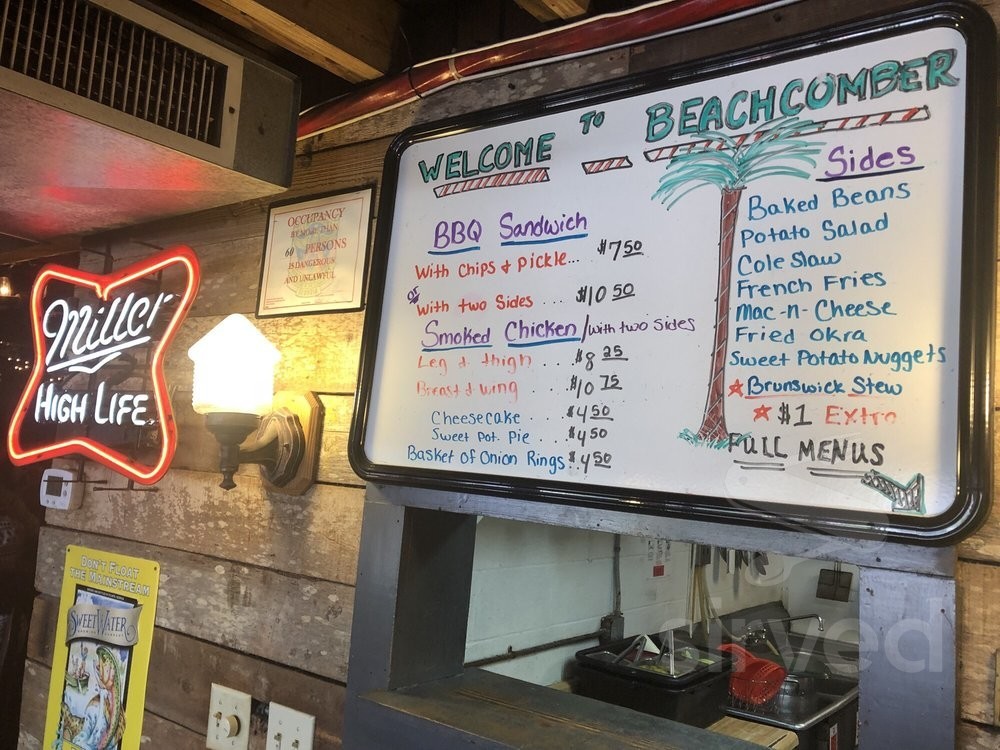 WELCOME TO BEACHCOMBER
BBQ Sandwich
With Chips & Pickle... $7 50
or
With two Sides .... $10 50
Smoked Chicken/with two sides
Leg & thigh ... $8 25
Breast & wing ... $10 75
Cheesecake .... $4 50
Sweet Pot. Pie ... $4 50
Basket of Onion Rings.. $4 50
Sides
Baked Beans
Potato Salad
Cole Slaw
French Fries
Mac-n-Cheese
Fried Okra
Sweet Potato Nuggets
Brunswick Stew
$1 Extra
FULL MENUS
OCCUPANCY
BY MORE THAN
60 PERSONS
IS DANGEROUS
AND UNLAWFUL
Miller
HIGH LIFE
DON'T FLOAT
THE MAINSTREAM
SWEETWATER
sirved